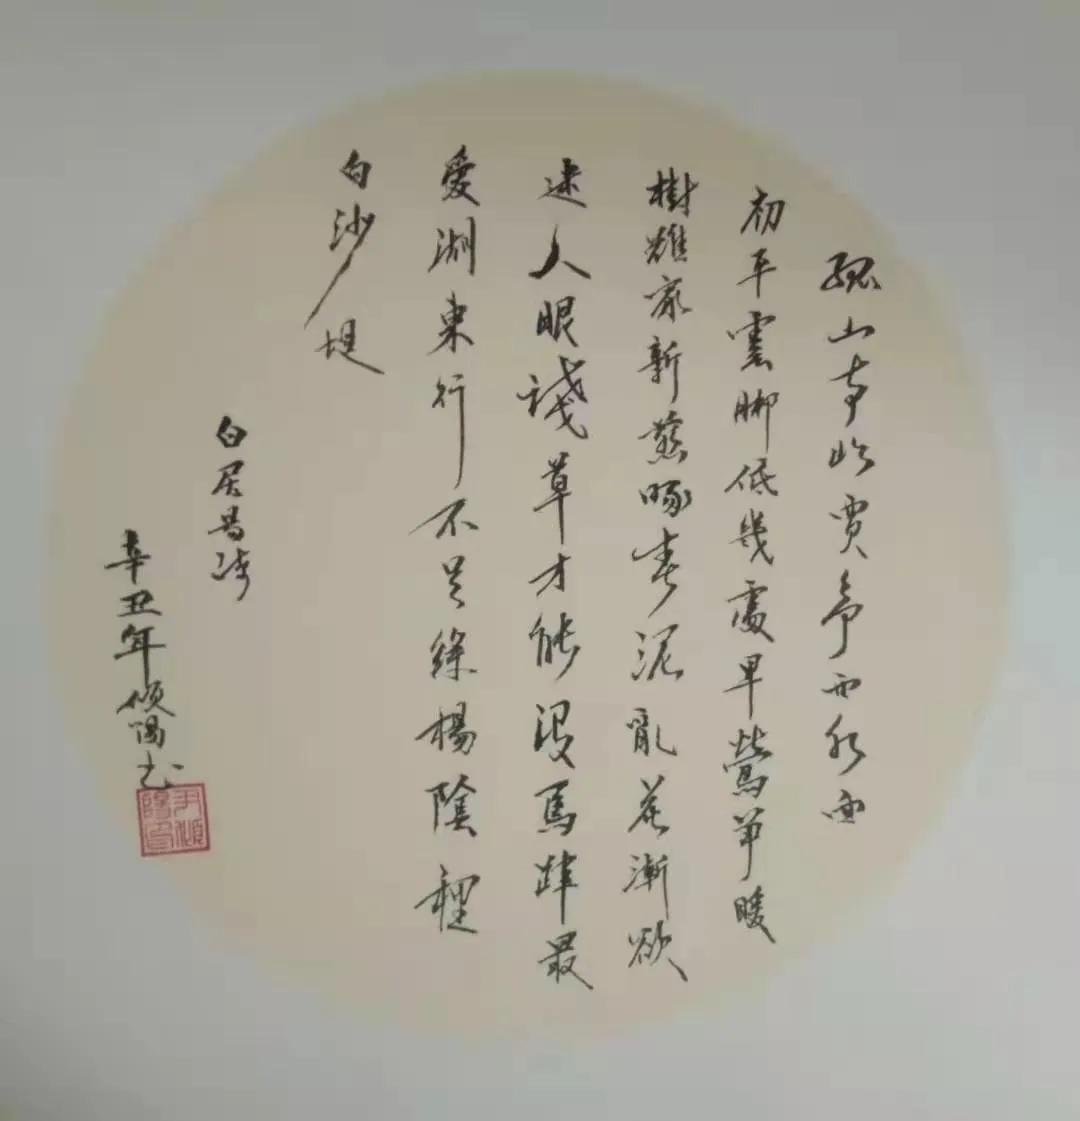 孤山寺北賈亭西水面
初平雲脚低幾處早鶯爭暖
樹誰家新燕啄春泥亂花漸欲
迷人眼淺草才能沒馬蹄最
愛湖東行不足綠楊陰裡
白沙堤
白居易詩
辛丑年傾陽书